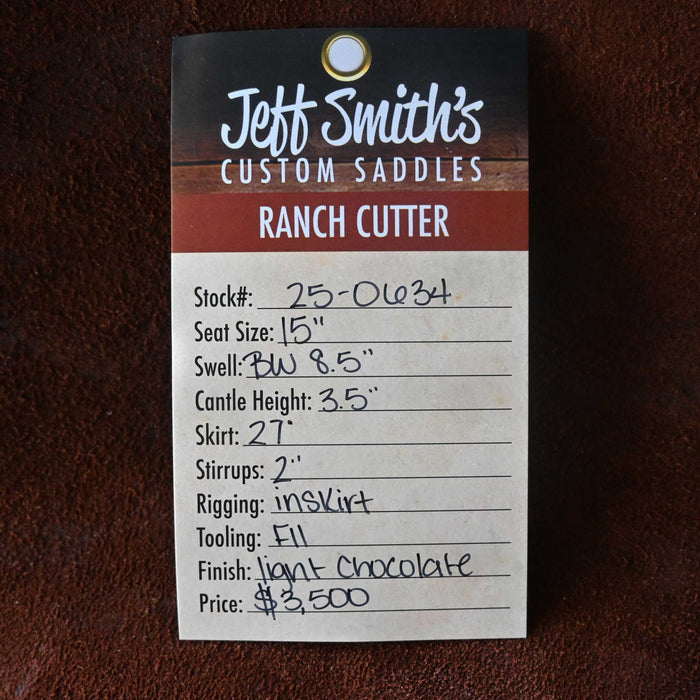 Jeff Smith's
CUSTOM SADDLES
RANCH CUTTER
Stock#: 25-0634
Seat Size: 15"
Swell: BW 8.5"
Cantle Height: 3.5"
Skirt: 27"
Stirrups: 2"
Rigging: inskirt
Tooling: F11
Finish: light chocolate
Price: $3,500